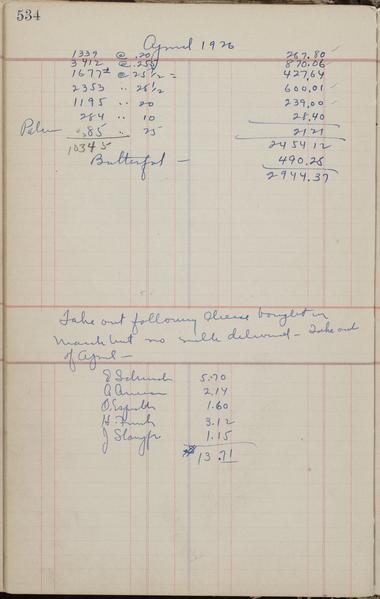 534
April 1926
1339 @ .20 267.80
3412 @ .25½ 870.06
1677 @ 25½ = 427.64
2353 " 25½ 600.01
1195 " 20 239.00
284 " 10 28.40
85 " 25 21.21
10345 2454 12
Butterfat — 490.25
2944.37
Take out following cheese bought in
March but no milk delivered - Take out
of April —
E Schmidt 5.70
2.14
O. 1.60
H. Funk 3.12
J 1.15
$13.71